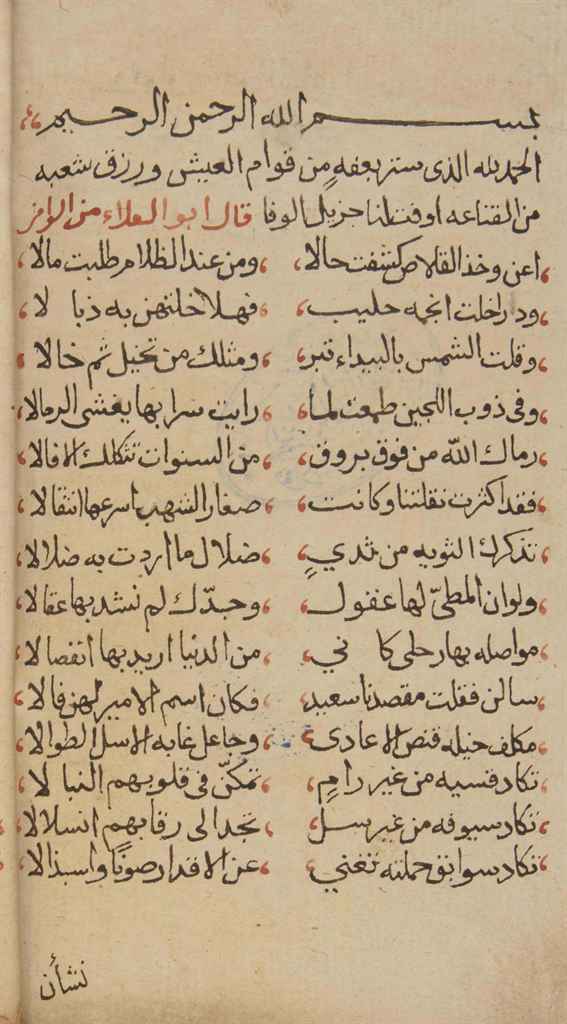 بسم الله الرحمن الرحيم
الحمد لله الذى ستر بعفه من قوام العيش ورزق شعبه
من القناعه اوفت لنا جزيل الوفا قال ابو العلاء من الوافر
اعن وخد القلاص كشفت حالا ومن عند الظلام طلبت مالا
ودرا خلت انجمه عليه فهلا خلتهن به ذبا لا
وقلت الشمس بالبيداء تبر ومثلك من تخيل ثم خالا
وفى ذوب اللجين طمعت لما رايت سرابها يغشى الرمالا
رماك الله من فوق بروق من السنوات تثكلك الافالا
فقد اكثرت نقلتنا وكانت صغار الشهب اسرعها انتقالا
تذكرك الثويه من ثدي ضلال ما اردت به ضلالا
ولوان المطى لها عقول وجدك لم نشد بها عقالا
مواصله بها رحلى كا ني من الدنيا اريد بها انفصالا
سالن فقلت مقصدنا سعيد فكان اسم الامير لهن فالا
مكلف خيله قنص الاعادى وجاعل غابه الاسل الطوالا
تكاد قسيه من غير رام تمكن فى قلوبهم النبا لا
تكاد سيوفه من غير سل تجد الى رقابهم انسلالا
تكاد سوابق حملته تغني عن الاقدار صونا وابتذالا
نشأن